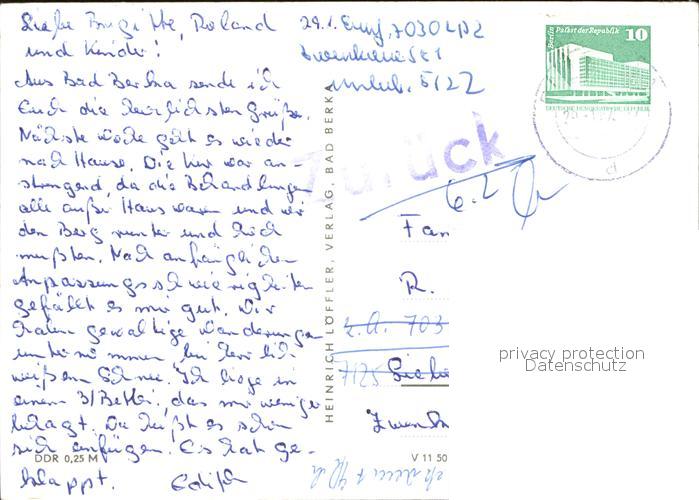 Liebe Brigitte, Roland
und Kinder!
Aus Bad Berka sende ich
Euch die herzlichsten Grüße.
Nächste Woche geht es wieder
nach Hause. Die Kur war an-
strengend, da die Behandlungen
alle außer Haus waren und wir
den Berg runter und hoch
mußten. Nach anfänglichen
Anpassungsschwierigkeiten
gefällt es mir gut. Wir
haben gewaltige Wanderungen
unternommen bei herrlich
weißem Schnee. Ich liege in
einem 3/Bettzi., das mir weniger
behagt. Da heißt es schon
sich einfügen. Es hat ge-
klappt. Edith
DDR 0,25 M
HEINRICH LÖFFLER, VERLAG, BAD BERKA
V 11 50
29.1. 7030 LPZ
5122
Berlin Palast der Republik 10
DEUTSCHE DEMOKRATISCHE REPUBLIK
d
Zurück
6.2
Fam
R.
z.A. 703
7125
privacy protection
Datenschutz